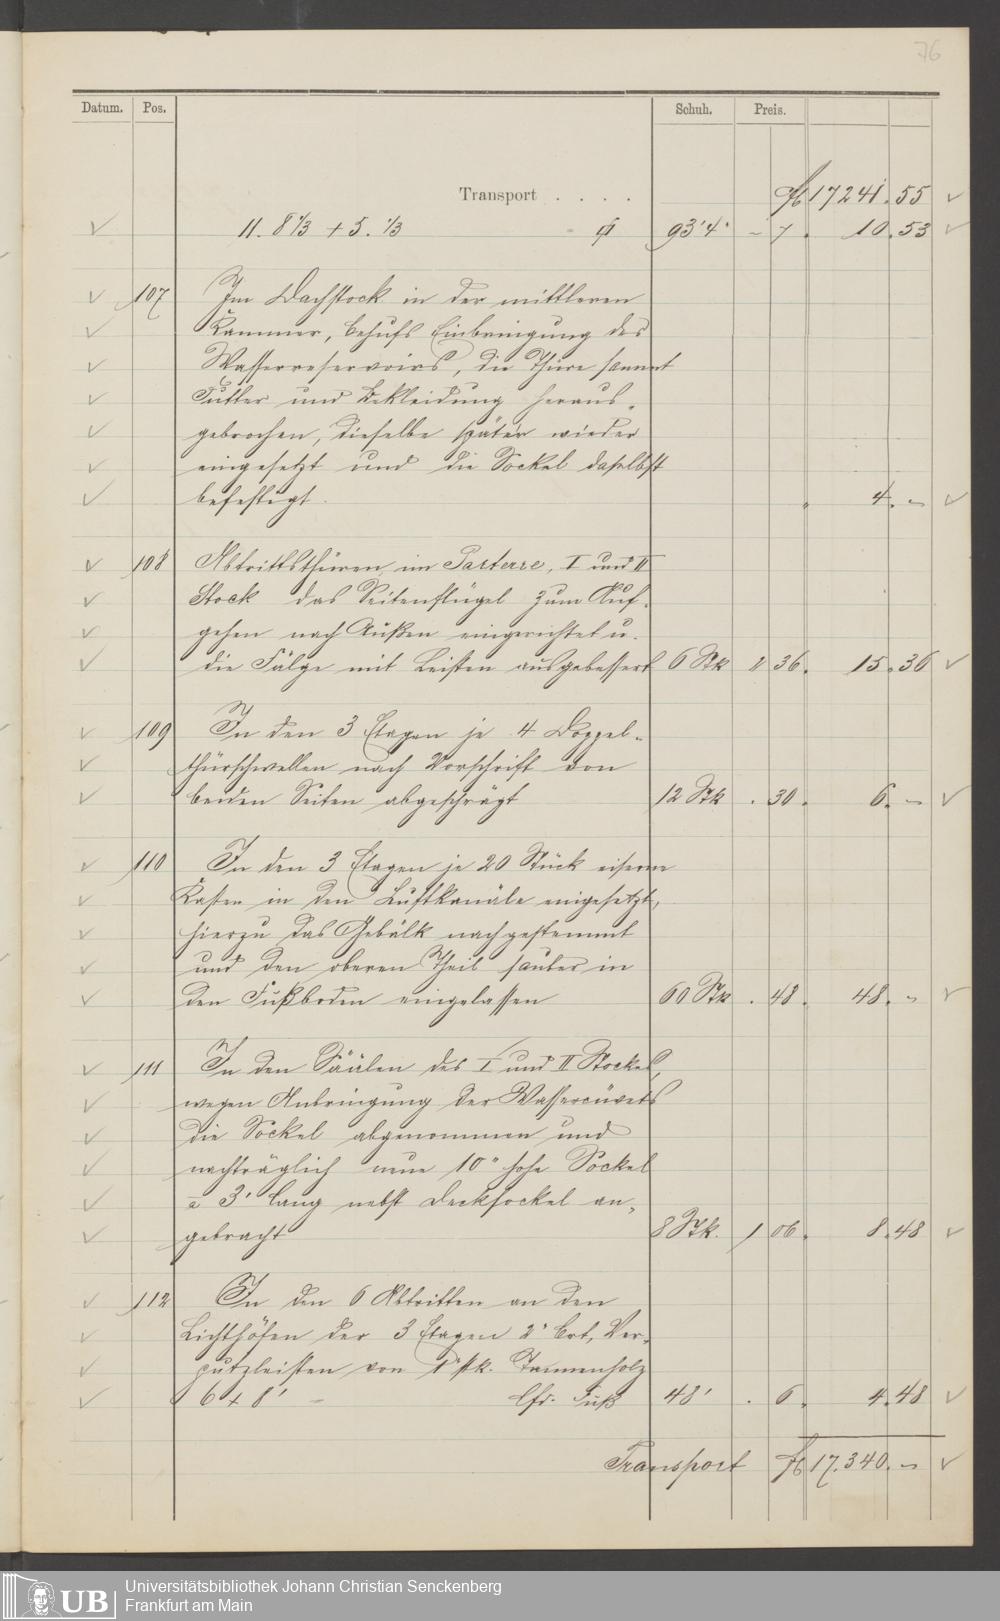 76
Datum. Pos. Schuh. Preis.
Transport . . . . fl 17241. 55
11. 8 1/3 + 5. 1/3 93' 4" - 7. 10. 53
107 Im Dachstock in der mittleren
Kammer, behufs Einbringung des
Wasserreservoirs, die Thüre sammt
Futter und Bekleidung heraus-
gebrochen, dieselbe später wieder
eingesetzt und die Sockel daselbst
befestigt. " 4. -
108 Abtrittsthüren im Parterre, I und II
Stock des Seitenflügel zum Auf-
gehen nach Außen eingerichtet u.
die Fälze mit Leisten ausgebessert 6 Stk 2 36. 15. 36
109 In den 3 Etagen je 4 Doppel-
thürschwellen nach Vorschrift von
beiden Seiten abgeschrägt 12 Stk . 30. 6. -
110 In den 3 Etagen je 20 Stück eiserne
Kasten in den Luftkanäle eingesetzt,
hierzu das Gebälk nachgestemmt
und den oberen Theil sauber in
den Fußboden eingelassen 60 Stk . 48. 48. -
111 In den Säälen des I und II Stockes,
wegen Anbringung der Wassercüvets
die Sockel abgenommen und
nachträglich neue 10" hohe Sockel
a 3' lang nebst Decksockel an-
gebracht 8 Stk. 1 06. 8. 48
112 In den 6 Abtritten an den
Lichthöfen der 3 Etagen 2" brt. Ver-
putzleisten von 1" stk. Tannenholz
6 + 8' - lfd. Fuß 48' . 6. 4. 48
Transport fl 17.340. -
UB
Universitätsbibliothek Johann Christian Senckenberg
Frankfurt am Main